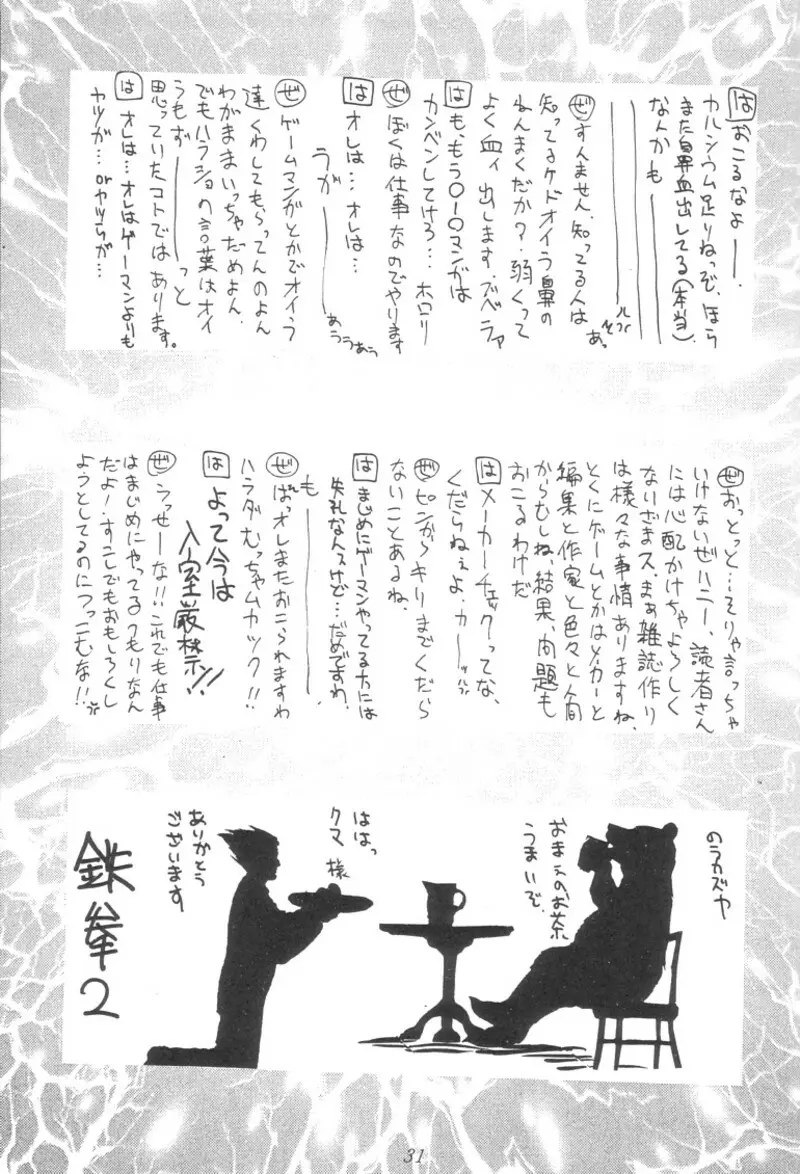 は おこるなよ――。
カルシウム足りねっぞ、ほら
また鼻血出してる(本当)
なんかも――
ぜ すんません、知ってる人は
知ってるケドオイラ鼻の
ねんまくだか?弱くって
よく血ィ出します。ブベラァ
は も、もう〇ー〇マンがは
カンベンしてけろ…ホロリ
ぜ ぼくは仕事なのでやります
は オレは…オレは…
うが――
あううあう
ぜ ゲームマンがとかでオイラ
達くわしてもらってんのよん
わがままいっちゃだめよん、
でもハラショの言葉はオイ
うもず――っと
思っていたコトではあります。
は オレは…オレはゲーマンよりも
ヤツが…orヤツらが…
ぜ おっとっと…そりゃ言っちゃ
いけないぜハニー、読者さん
には心配かけちゃよろしく
ないざまス、まぁ雑誌作り
は様々な事情ありますね、
とくにゲームとかはメーカーと
編集と作家と色々と人間
からむしね、結果、問題も
おこるわけだ
は メーカーチェックってな、
くだらねぇよ、カーッ
ぜ ピンからキリまでくだら
ないことあるね、
は まじめにゲーマンやってる方には
失礼なんスけど…だめですわ、
も――
ぜ ばっオレまたおこられますわ
ハラダむっちゃムカック!!
は よって今は
入室厳禁!!
ぜ うっせーな!!これでも仕事
はまじめにやってるつもりなん
だよ!すこしでもおもしろくし
ようとしてるのにつっこむな!!
のラカズヤ
おまえのお茶
うまいぞ、
ははっ
クマ様
ありがとう
ございます
鉄拳2
31